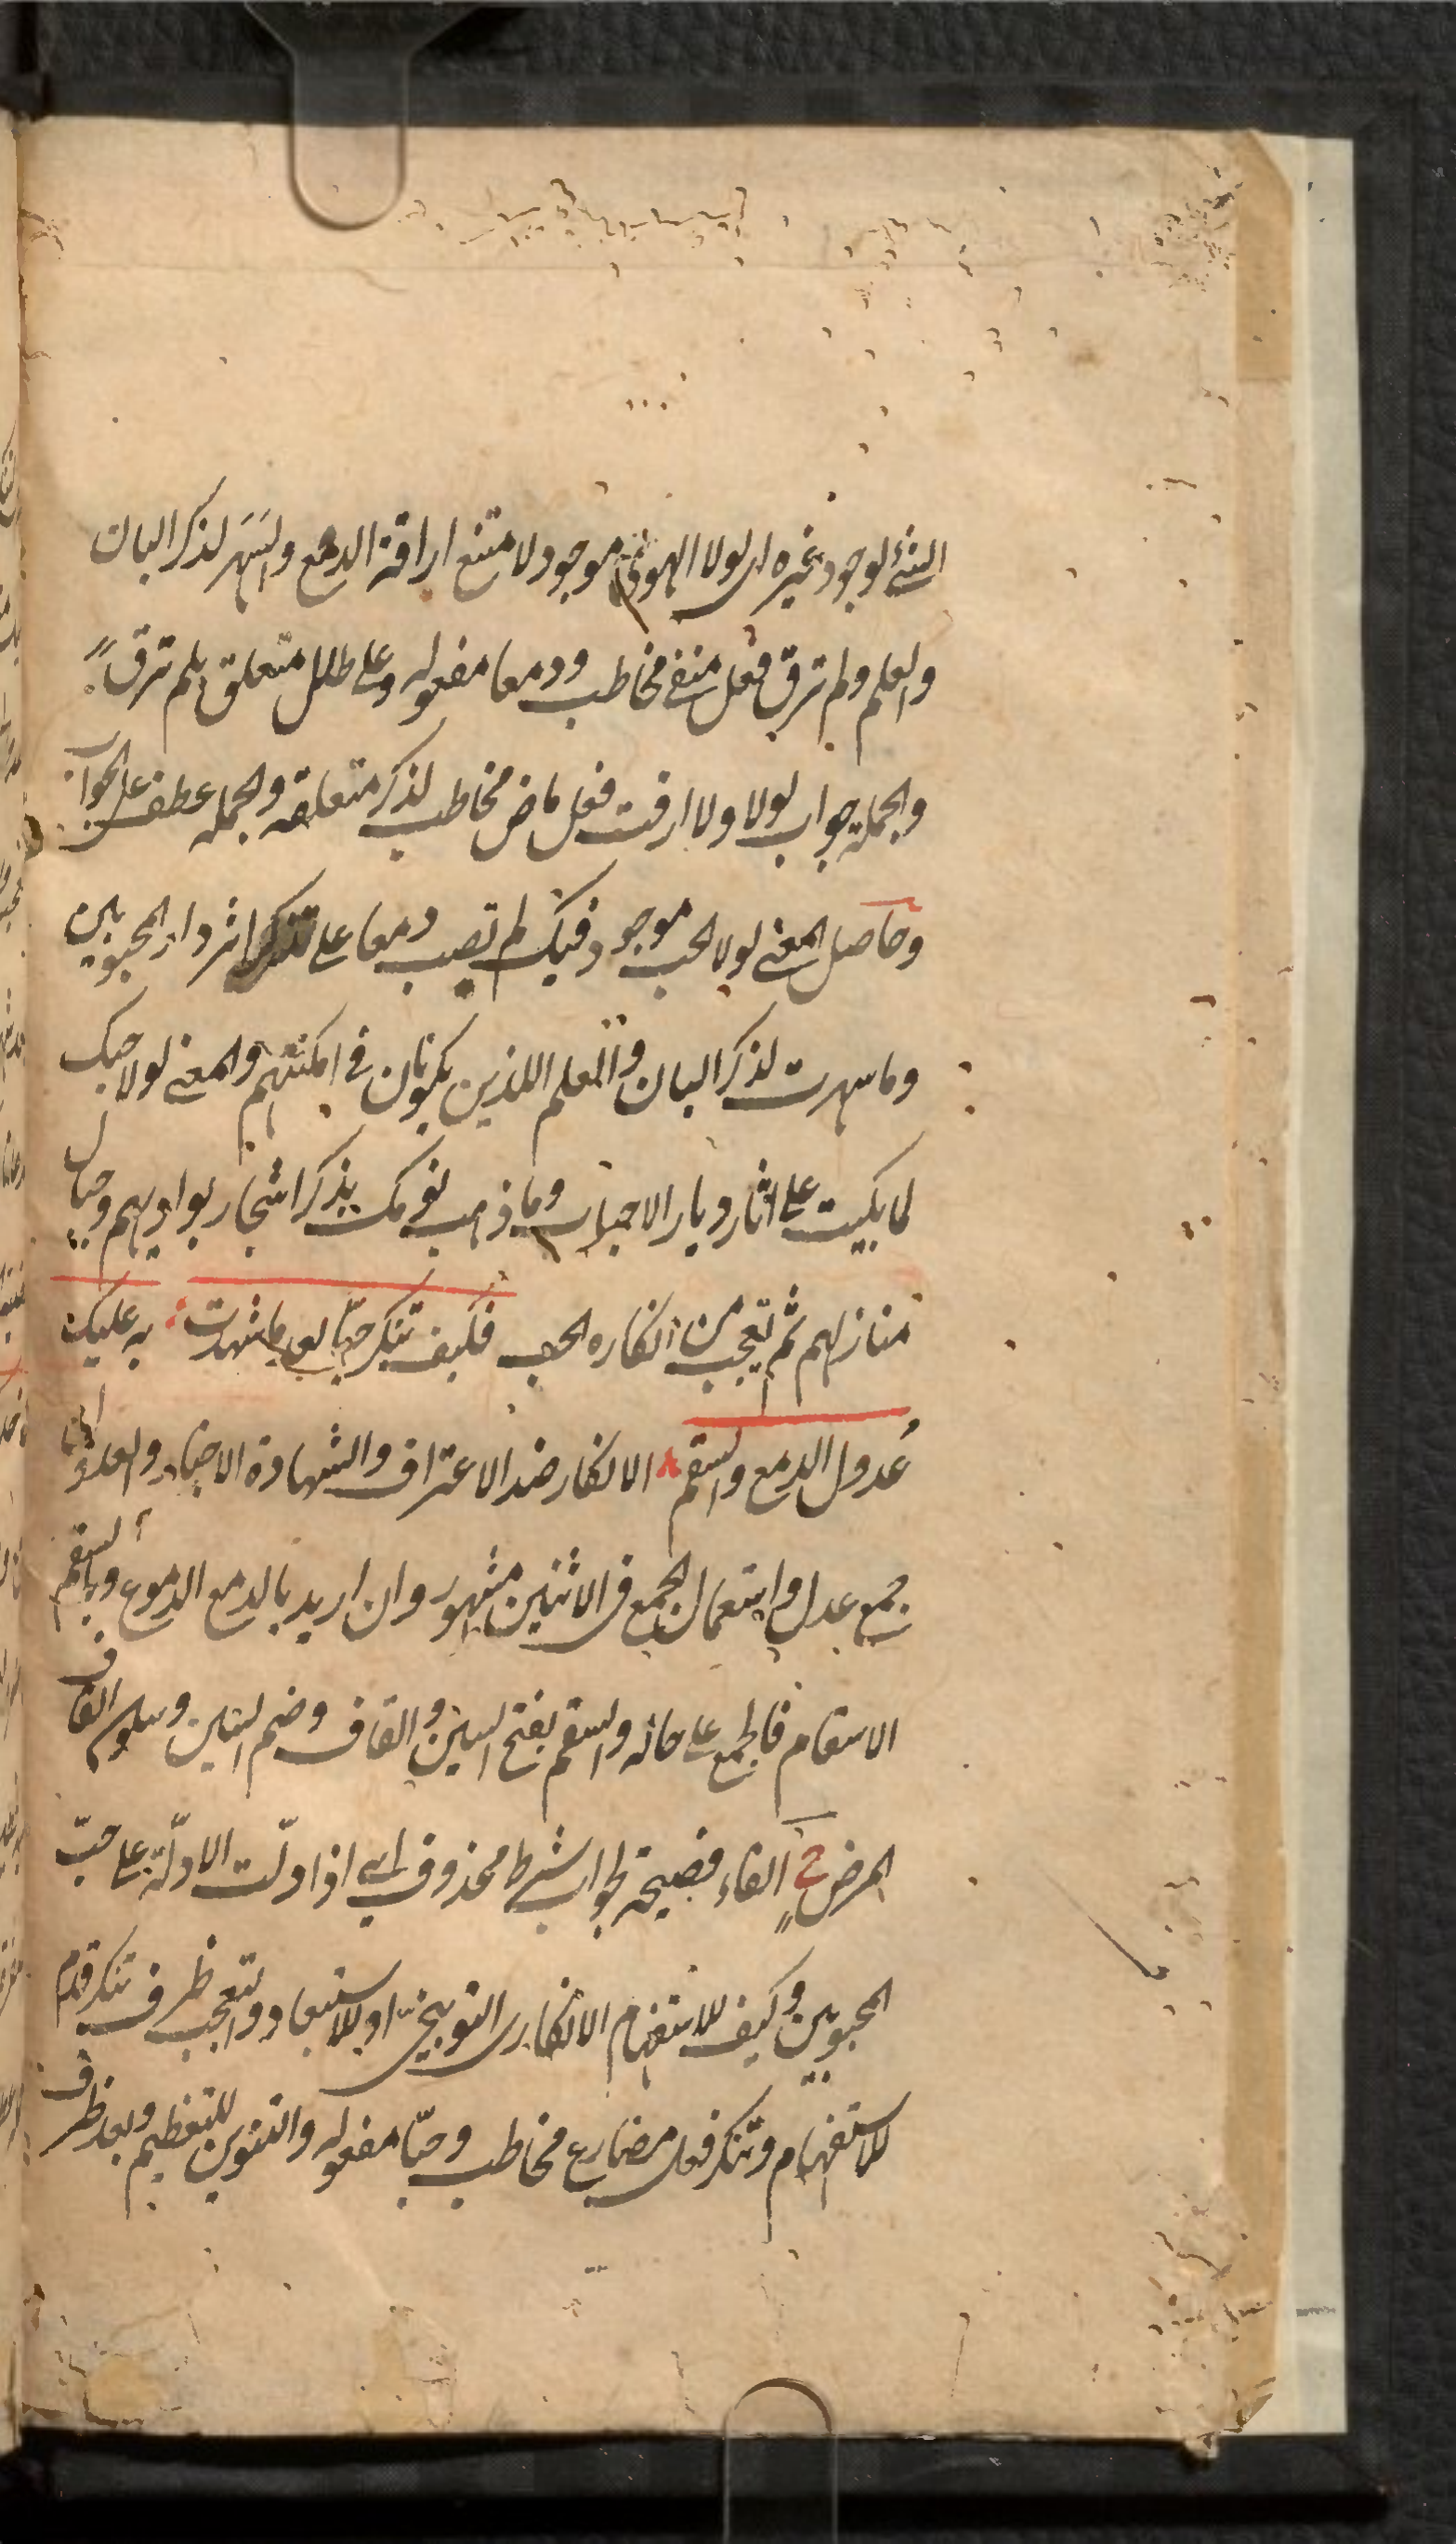 الشئ لوجود غيره اى لولا الهوى موجود لامتنع اراقة الدمع والسَهَر لذكر البان
والعلم ولم ترق فعل منفى مخاطب ودمعا مفعوله وعلى طلل متعلق بلم ترق
والجملة جواب لولا ولا ارقت فعل ماض مخاطب لذكر متعلقه والجمله عطف على الجواب
وحاصل المعنى لولا الحب موجود فيك لم تصب دمعا على تذكر اثر دار المحبوبين
وما سهرت لذكر البان والعلم اللذين يكونان فى امكنتهم والمعنى لولا حبك
لما بكيت على اثار ديار الاحباب وما ذهب نومك بذكر اشجار بواديهم وجبال
منازلهم ثم تعجب من انكاره الحب فكيف تنكر حبّا بعد ما شهدت به عليك
عُدول الدمع والسقم الانكار ضد الاعتراف والشهادة الاخبار والعدول
جمع عدل واستعمال الجمع فى الاثنين مشهور وان اريد بالدمع الدموع وبالسقم
الاسقام فالجمع على حاله والسقم بفتح السين والقاف وضم السين وسكون القاف
المرض ح الفاء فصيحة لجواب شرط محذوف اى اذا دلّت الادلّة على حبّ
المحبوبين وكيف للاستفهام الانكارى التوبيخى او للاستبعاد والتعجب ظرف تنكر قدم
للاستفهام وتنكر فعل مضارع مخاطب وحبّا مفعوله والتنوين للتعظيم وبعد ظرف